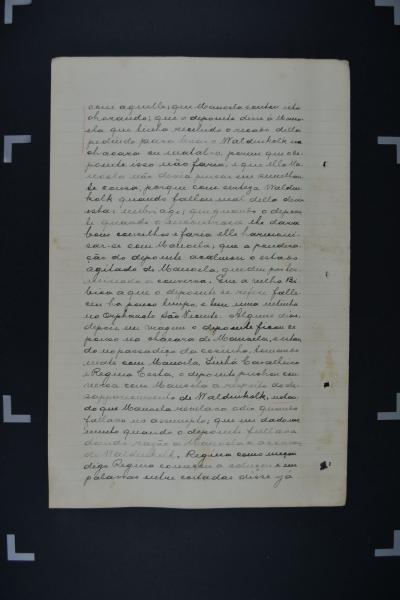 com aquillo; que Manoela contou isto
chorando; que o depoente disse á Mano-
ela que tinha recebido o recado della
pedindo para levar o Waldenkolk na
chacara ou matal-o, porem que o de-
poente isso não faria, e que ella Ma-
noela não devia pensar em semelhan-
te cousa, porque com certeza Walden-
kolk quando fallou mal della devia
estar que quando o depoen-
te o encontrasse lhe daria
bons conselhos e faria elle harmoni-
sar-se com Manoela; que a pondera-
ção do depoente acalmou o estado
agitado de Manoela, que deu por ter-
minada a conversa. Que a velha Bi-
bisa a que o depoente se refere falle-
ceu ha pouco tempo, e tem uma netinha
no Orphanato São Vicente. Alguns dias
depois em viagem o depoente ficou se
pouso na chacara de Manoela, e estan-
do no passadiço da cosinha, tomando
matte com Manoela, Sinhá Cavalheiro
e Regina Costa, o depoente puchou con-
versa com Manoela a respeito do de-
sapparecimento de Waldenkolk, notan-
do que Manoela revelava odio quando
fallava no assumpto; que em dado mo-
mento quando o depoente fallava
dando razão a Manoela e
de Waldenkolk, Regina
digo Regina começou a soluçar e em
palavras entre cortadas disse já